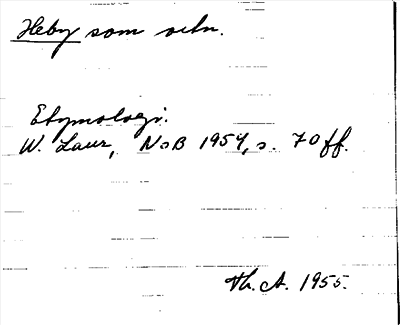 Heby som ortn.
Etymologi.
W. Laur, NoB 1954, s. 70 ff.
Th. A. 1955.